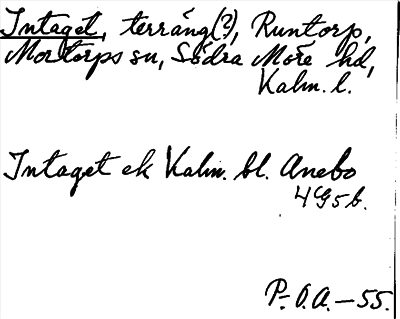 Intaget, terräng(?), Runtorp,
Mortorps sn, Södra Möre hd,
Kalm. l.
Intaget ek Kalm. bl. Anebo
4G5b.
P.-O.A.-55.